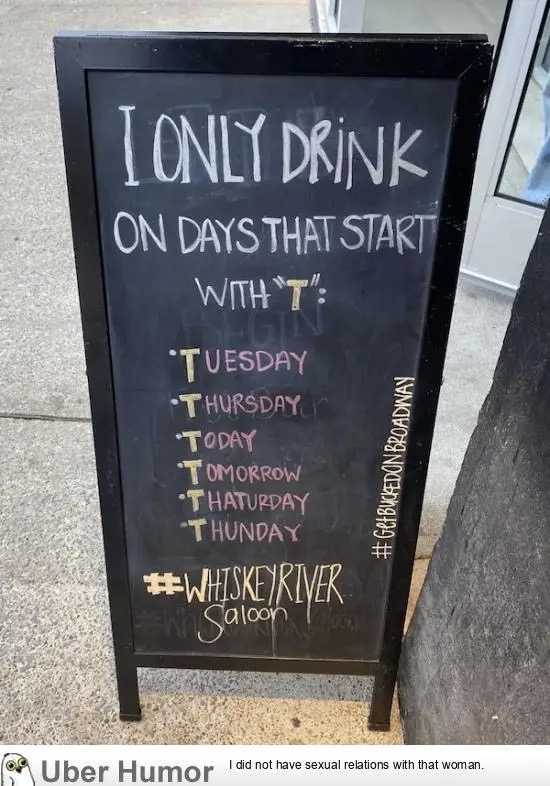 I ONLY DRINK
ON DAYS THAT START
WITH "T":
·TUESDAY
·THURSDAY
·TODAY
·TOMORROW
·THATURDAY
·THUNDAY
#WHISKEYRIVER
Saloon
#GETBUCKEDONBROADWAY
Uber Humor
I did not have sexual relations with that woman.